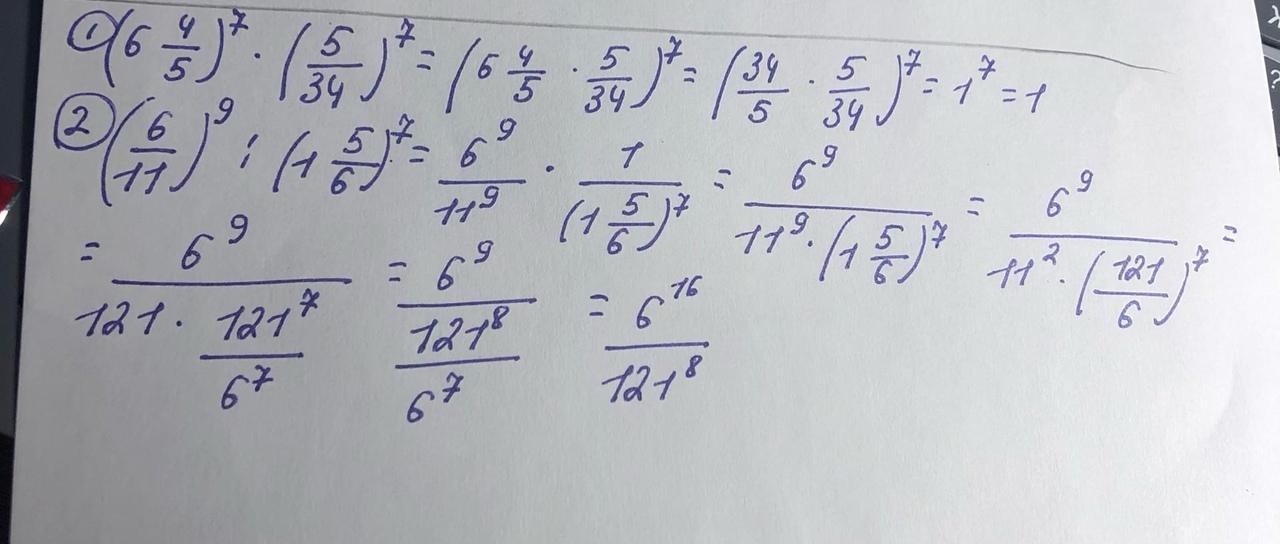 ① (6 4/5)^7 · (5/34)^7 = (6 4/5 · 5/34)^7 = (34/5 · 5/34)^7 = 1^7 = 1
② (6/11)^9 : (1 5/6)^7 = 6^9/11^9 · 1/(1 5/6)^7 = 6^9/(11^9 · (1 5/6)^7) = 6^9/(11^2 · (121/6)^7) =
= 6^9/(121 · 121^7/6^7) = 6^9/(121^8/6^7) = 6^16/121^8